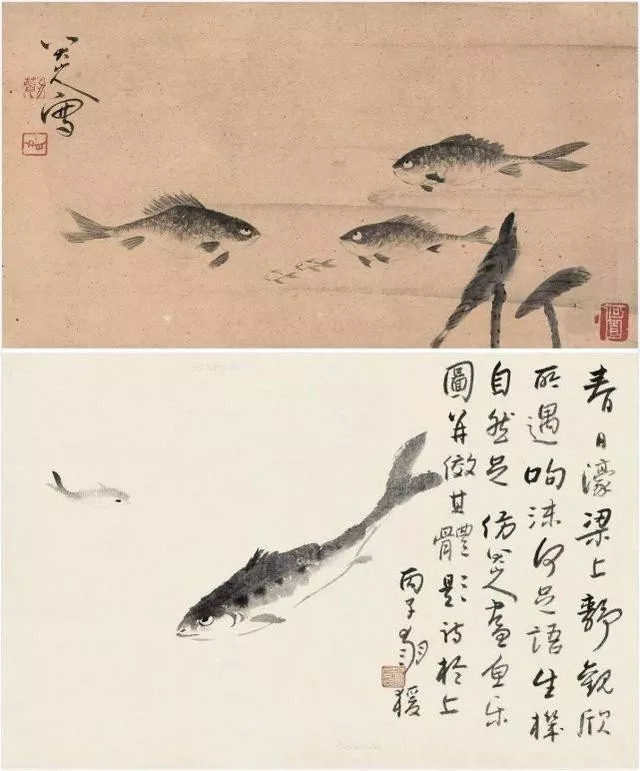 八大山人寫
春日濠梁上靜觀欣
所遇呴沫何足語生機
自然足仿八大山人畫魚乐
圖并倣其體題詩於上
丙子